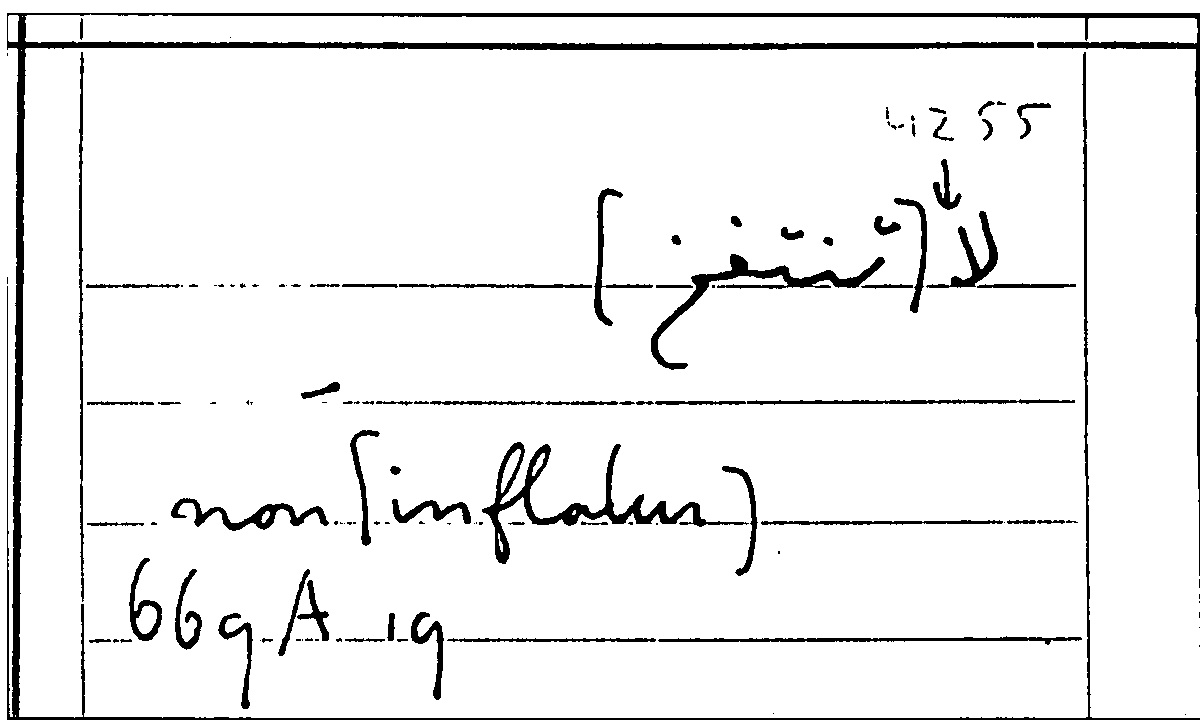 4255
لا [ينتفخ]
non [inflatur]
669 A 19